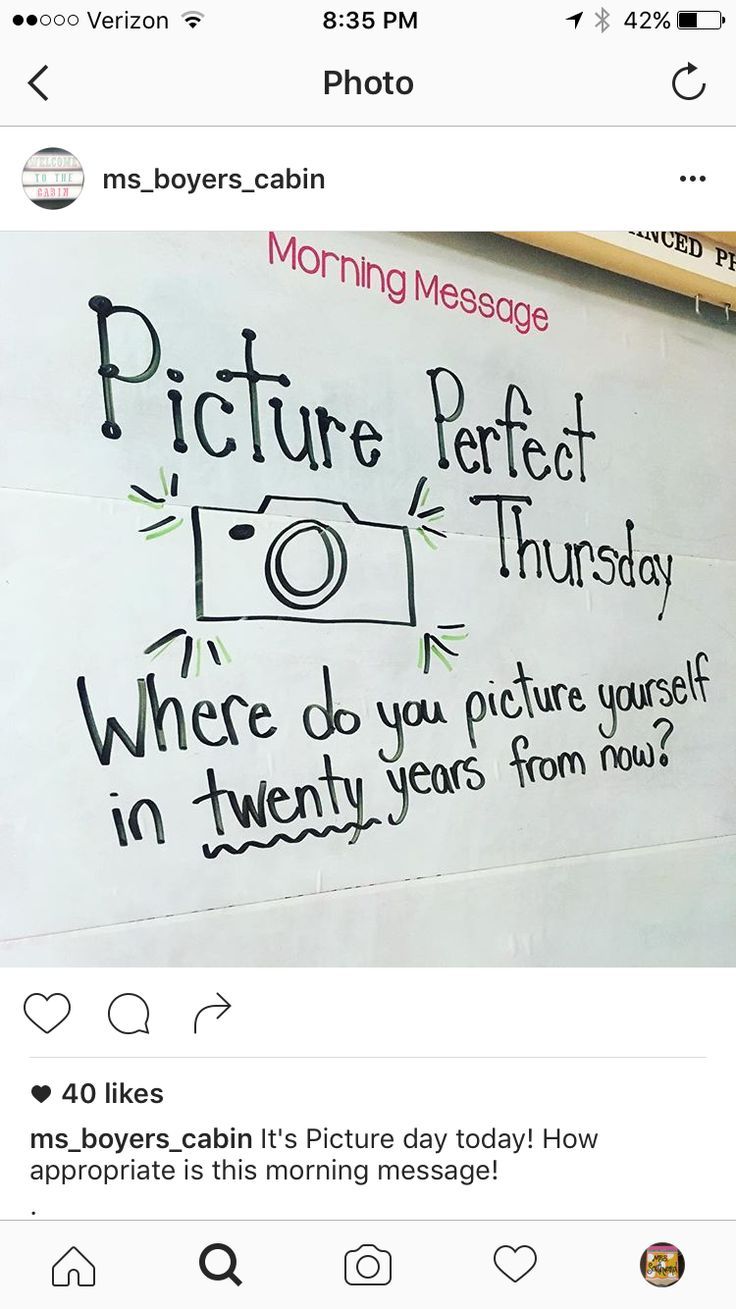 Verizon 8:35 PM 42%
Photo
WELCOME
TO THE
CABIN
ms_boyers_cabin
Morning Message
Picture Perfect
Thursday
Where do you picture yourself
in twenty years from now?
40 likes
ms_boyers_cabin It's Picture day today! How
appropriate is this morning message!
.